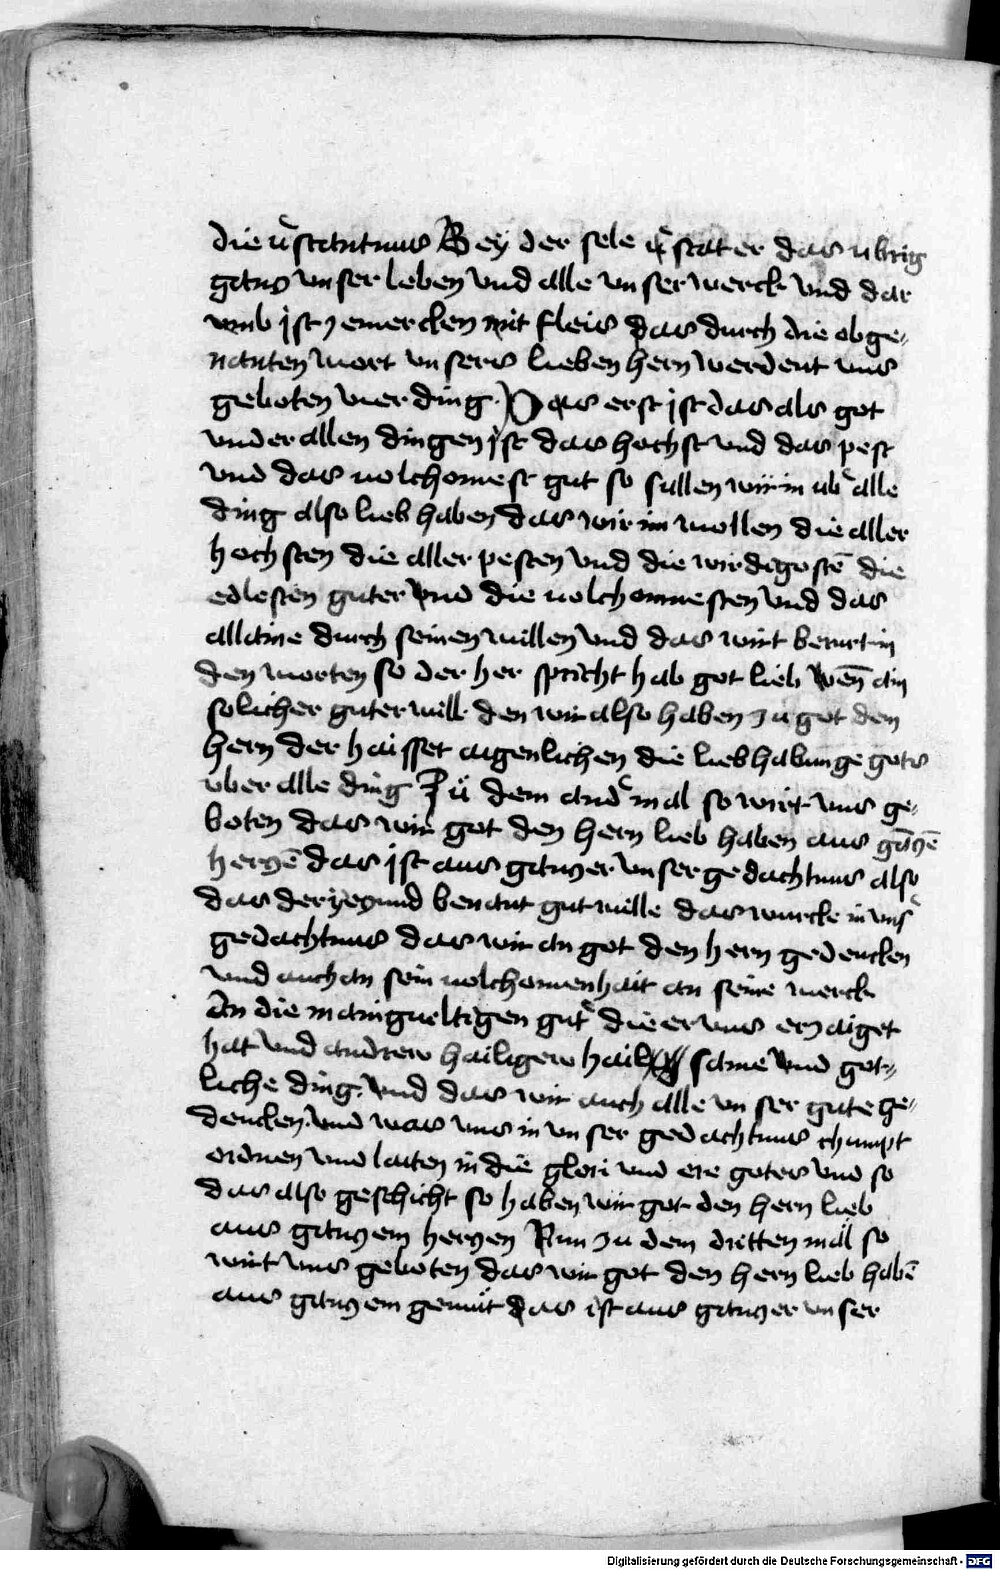 die v̄stantnus Bey der sele v̄stat er das ubrig
gancz unser leben vnd alle unser werck vnd dar
vmb jst zemercken mit fleis das durch die obge-
nanten wort unsers lieben hern werdent uns
geboten vier ding. Das erst jst das als got
vnder allen dingen jst das hochst vnd das pest
vnd das uolchomest gut so sullen wir in ub̄ alle
ding also lieb haben das wir im wollen die aller
hochsten die aller pesten vnd die wirdigostē die
edlesten guter vnd die uolchomnesten vnd das
allaine durch seinen willen vnd das wirt berurt in
den worten so der her spricht hab got lieb wēn ain
solicher guter will den wir also haben zu got den
hern der haisset aigenlichen die liebhabunge gots
vber alle ding Zü dem and̄ mal so wirt uns ge-
boten das wir got den hern lieb haben aus gāczē
herczē das jst aus ganczer unser gedachtnus also
das der yeczund benant gut wille das wurcke in uns̄
gedachtnus das wir an got den hern gedencken
vnd auch an sein uolchomenhait an seine werck
An die manigueltigen gut̄ die er uns erzaiget
hat vnd andrew hailigew hail same vnd got-
liche ding. vnd das wir auch alle unser gute ge-
dencken. vnd was uns in unser gedachtnus chumpt
ordnen vnd laiten in die glori vnd ere gotes vnd so
das also geschicht so haben wir got den hern lieb
aus ganczem herczen Nun zu dem dritten mal so
wirt uns geboten das wir got den hern lieb habē
aus ganczem gemüt das ist aus ganczer unser
Digitalisierung gefördert durch die Deutsche Forschungsgemeinschaft - DFG